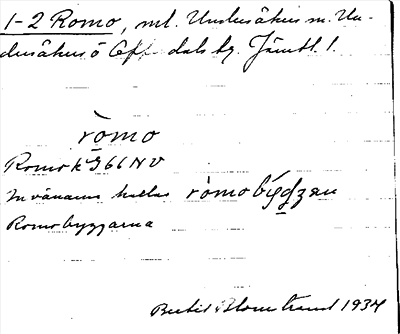 1-2 Romo, ml. Undersåkers sn. Un-
dersåkers o Off dals hg. Jämtl. l.
ròmo
Romo k 966 NV
Invånarna kallas ròmobýgdzan
Romobyggarna
Bertil Blomstrand 1934